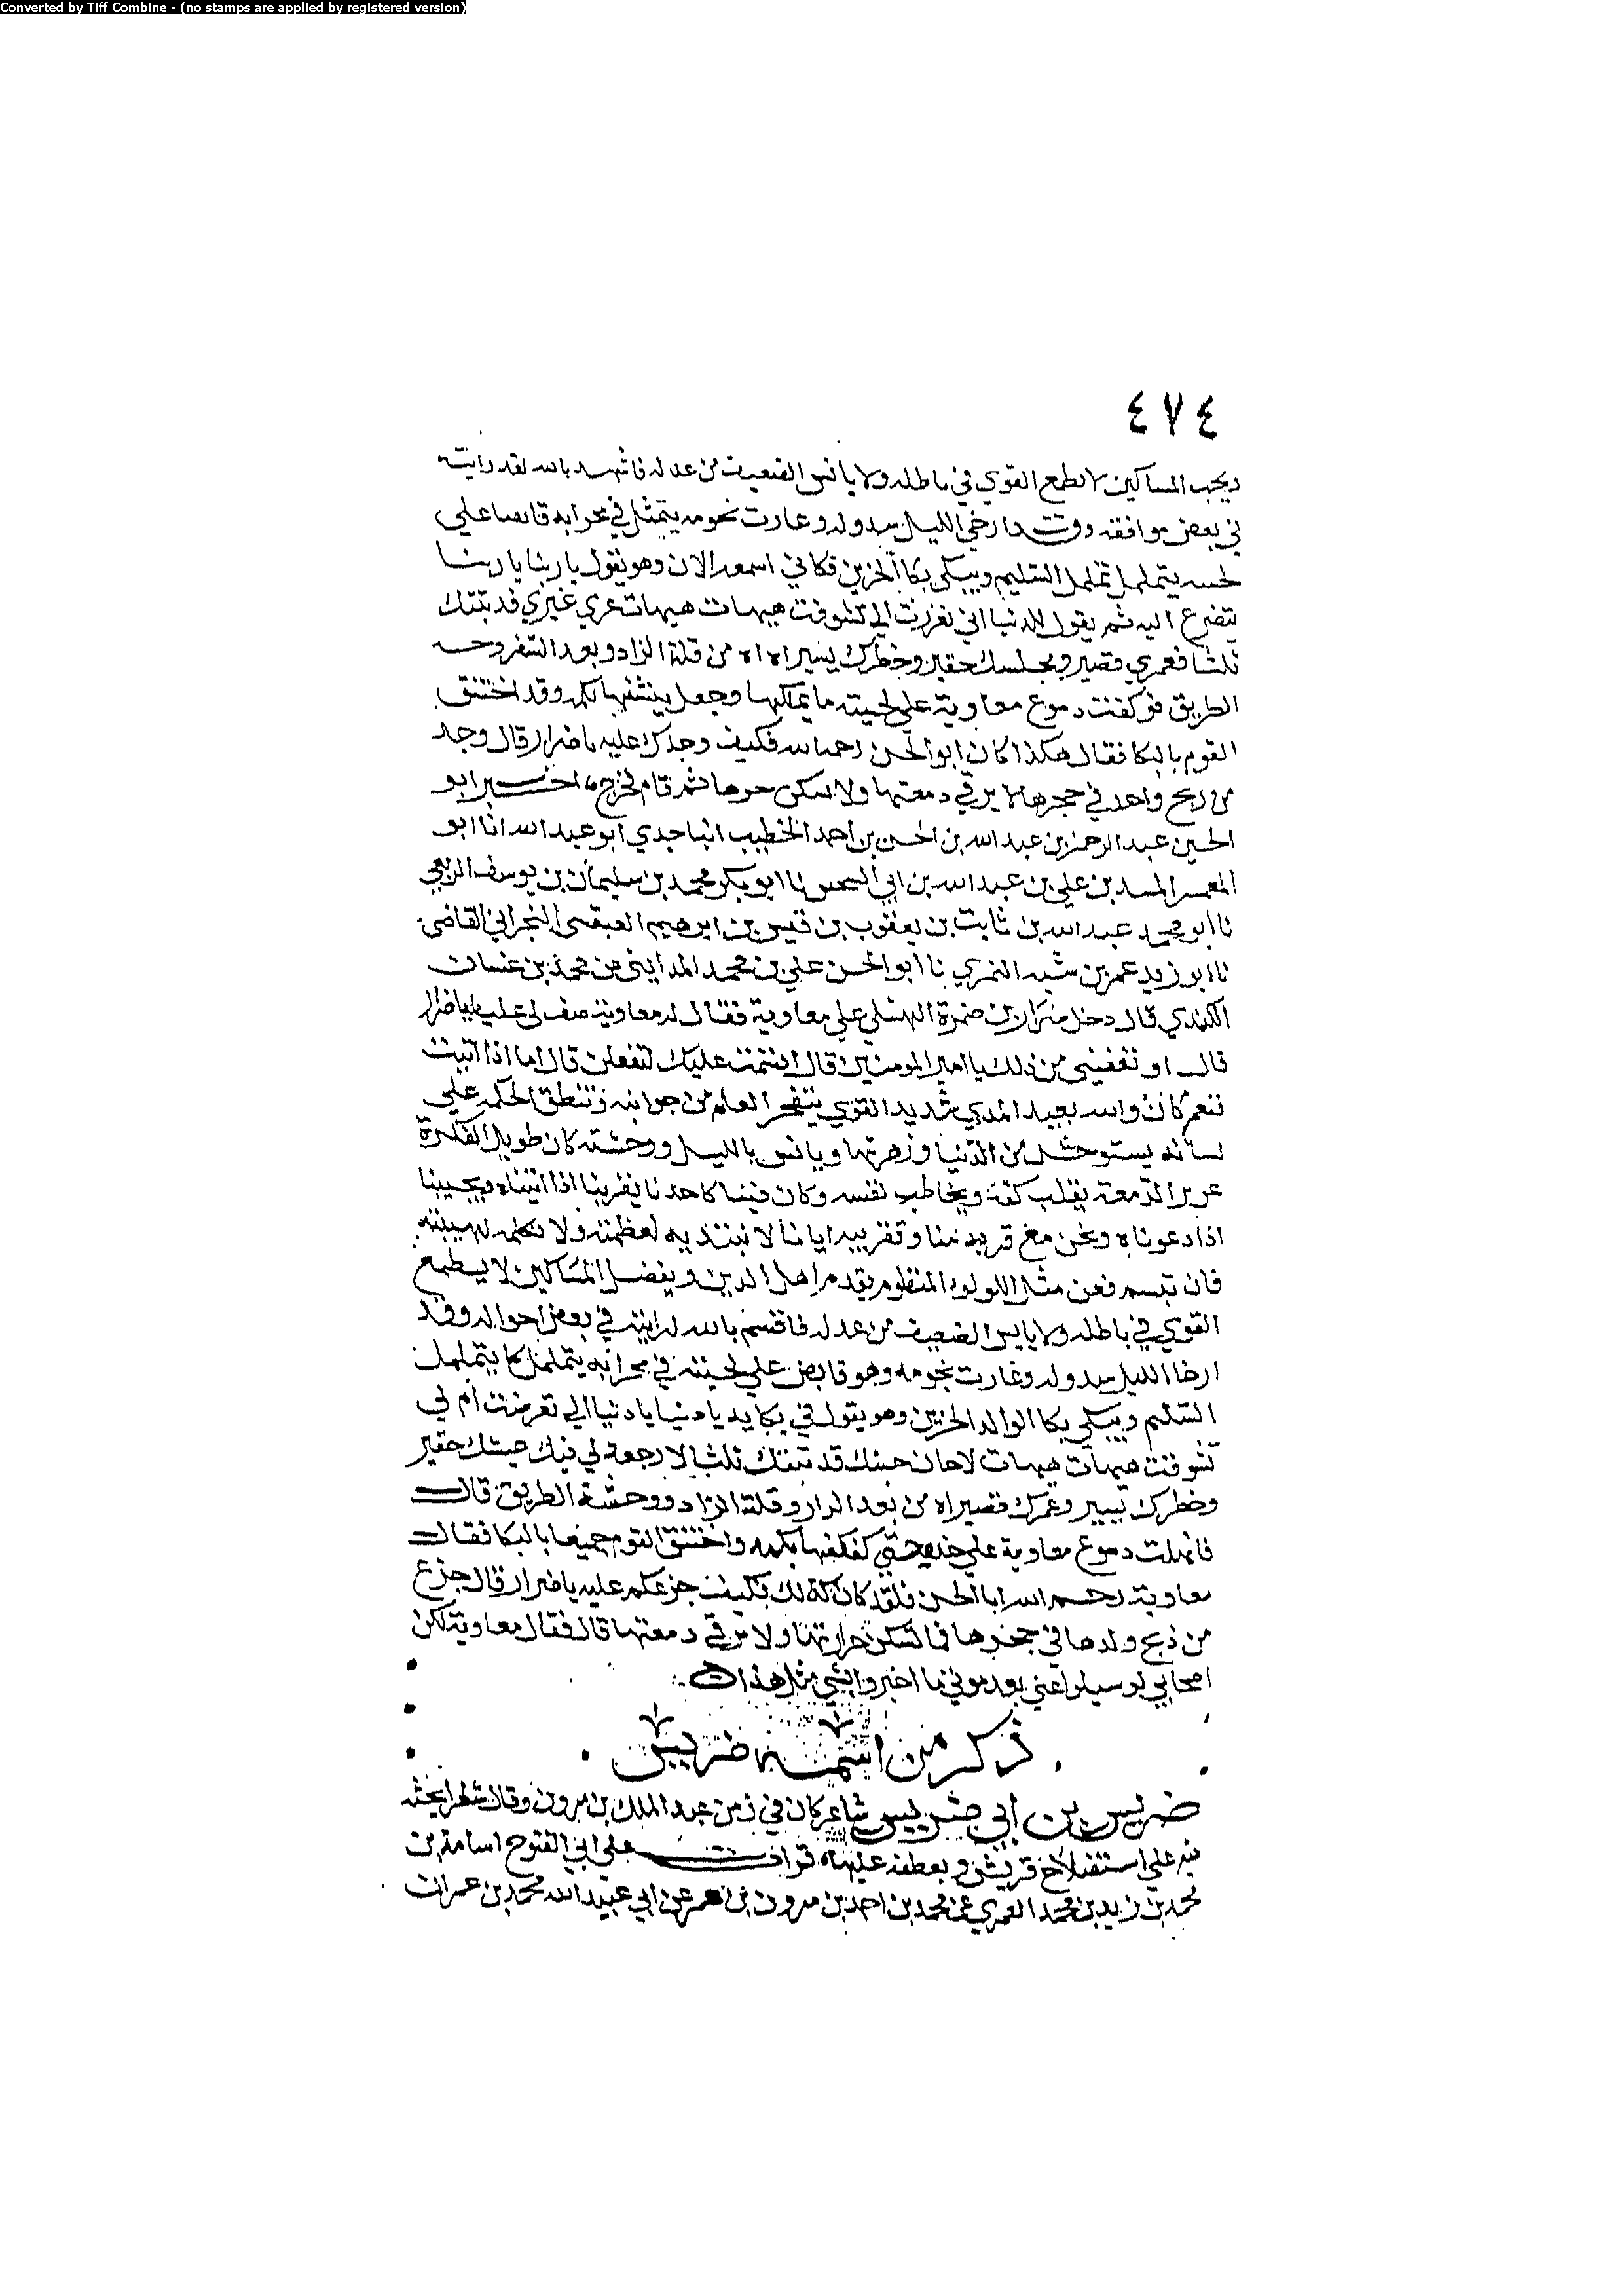 Converted by Tiff Combine - (no stamps are applied by registered version)
٤٧٤
ويحب المساكين لا يطمع القوي في باطله ولا يايس الضعيف من عدله فاشهد بالله لقد رايته
في بعض موافقه وقد ارخي الليل سدوله وغارت نجومه يتمثل في محرابه قابضا علي
لحيته يتململ تململ السليم ويبكي بكا الحزين فكاني اسمعه الان وهو يقول يا ربنا يا ربنا
يتضرع اليه ثم يقول للدنيا الي تشوفت هيهات هيهات غري غيري قد بتتك
ثلثا فعمرك قصير ومجلسك حقير وخطرك يسير اه اه من قلة الزاد وبعد السفر ووحشه
الطريق فوكفت دموع معاوية علي لحيته ما يملكها وجعل ينشفها بكمه وقد اختنق
القوم بالبكا فقال هكذا كان ابو الحسن رحمه الله فكيف وجدك عليه يا ضرار قال وجد
من ذبح واحدها في حجرها لا يرقي دمعتها ولا يسكن حزها ثم قام فخرج اخبرنا ابو
الحسين عبد الرحمن بن عبد الله بن الحسن بن احمد الخطيب انبا جدي ابو عبد الله انا ابو
المعمر المسدد بن علي بن عبد الله بن ابي السجيس نا ابو بكر محمد بن سليمان بن يوسف الربعي
نا ابو محمد عبد الله بن ثابت بن يعقوب بن قيس بن ابرهيم العبقسي النجراني القاضي
نا ابو زيد عمر بن شبه النمري نا ابو الحسن علي بن محمد المدايني عن محمد بن غسان
الكندي قال دخل ضرار بن ضمرة النهشلي علي معاوية فقال له معاوية صف لي عليا يا ضرار
قال او تعفيني من ذلك يا امير المومنين قال اقسمت عليك لتفعلن قال اما اذا ابيت
فنعم كان والله بعيد المدي شديد القوي يتفجر العلم من جوانبه وتنطق الحكمه علي
لسانه يستوحش من الدنيا وزهرتها ويانس بالليل ووحشته كان طويل الفكرة
غزير الدمعة يقلب كفه ويخاطب نفسه وكان فينا كاحدنا يقربنا اذا اتيناه ويجيبنا
اذا دعوناه ونحن مع قربه منا وتقريبه ايانا لا نبتديه لعظمته ولا نكلمه لهيبته
فان تبسم فعن مثل اللولو المنظوم يقدم اهل الدين ويفضل المساكين لا يطمع
القوي في باطله ولا يايس الضعيف من عدله فاقسم بالله لرايته في بعض احواله وقد
ارخا الليل سدوله وغارت نجومه وهو قابض علي لحيته في محرابه يتململ كما يتململ
السليم ويبكي بكا الواله الحزين وهو يقول في بكايه يا دنيا يا دنيا الي تعرضت ام لي
تشوفت هيهات هيهات لا حان حينك قد بتتك ثلثا لا رجعة لي فيك عيشك حقير
وخطرك يسير وعمرك قصير اه من بعد الدار وقلة الزاد ووحشة الطريق قال
فانهلت دموع معاوية علي خديه حتي كفكفها بكمه واختنق القوم جميعا بالبكا فقال
معاوية رحم الله ابا الحسن فلقد كان كذلك فكيف جزعكم عليه يا ضرار قال جزع
من ذبح ولدها في حجرها فما تسكن حرارتها ولا ترقي دمعتها قال فقال معاوية لكن
اصحابي لو سيلوا عني بعد موتي ما اخبروا بشي مثل هذا
ذكر من اسمه ضريس
ضريس بن ابي ضريس شاعر كان في زمن عبد الملك بن مرون وقال شعرا يحثه
فيه علي استصلاح قريش ويعطفه عليهم قرات علي ابي الفتوح اسامة بن
محمد بن زيد بن محمد العمري عن محمد بن احمد بن مرون بن عمر عن ابي عبيد الله محمد بن عمران